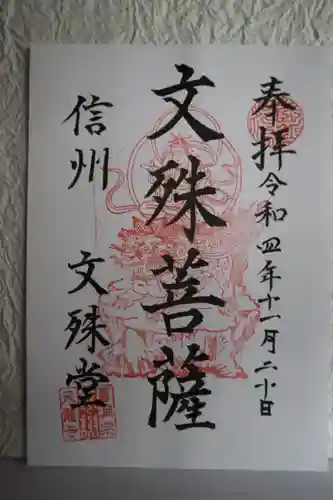 奉拝 令和四年十一月二十日
文殊菩薩
信州 文殊堂